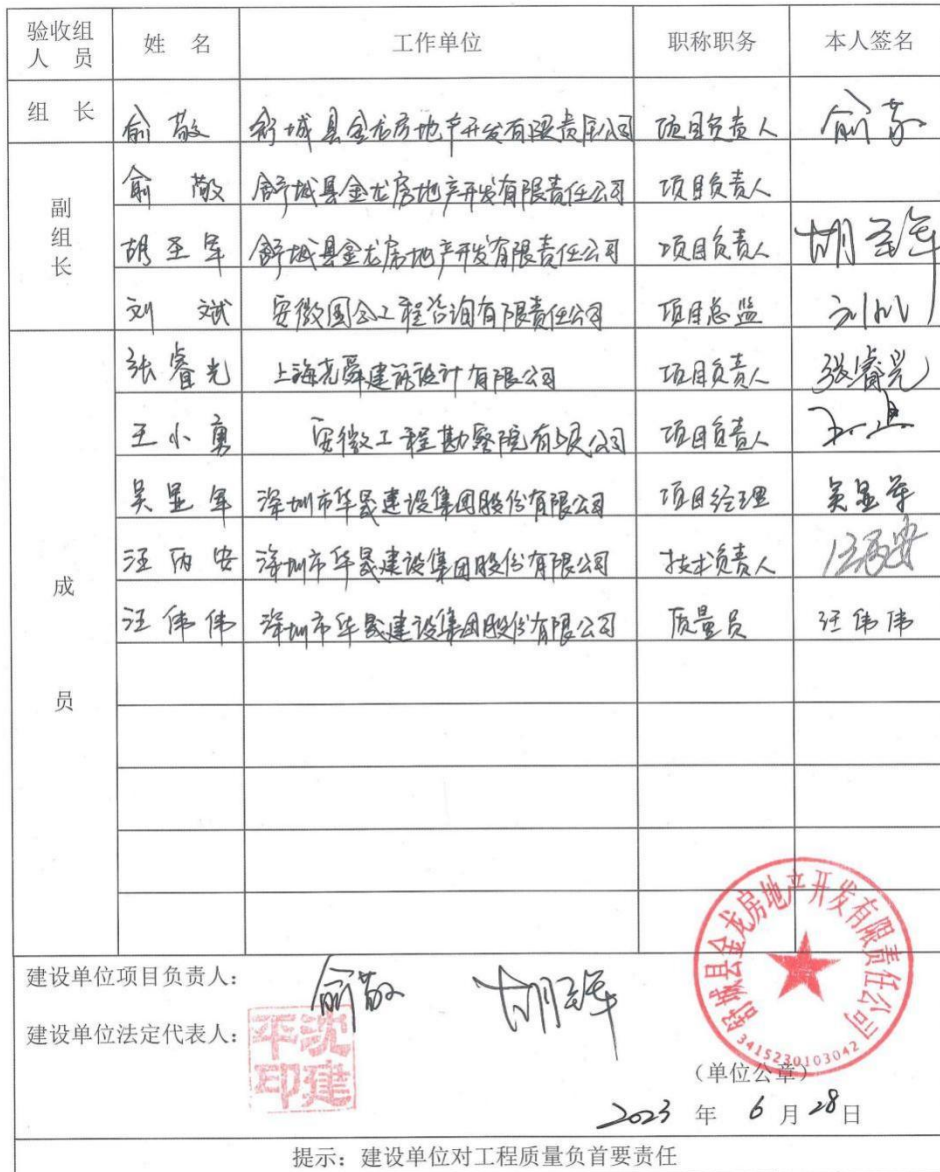 验收组人员 姓 名 工作单位 职称职务 本人签名
组 长 俞敬 舒城县金龙房地产开发有限责任公司 项目负责人 俞敬
副组长 俞敬 舒城县金龙房地产开发有限责任公司 项目负责人
胡圣军 舒城县金龙房地产开发有限责任公司 项目负责人 胡圣军
刘斌 安徽国合工程咨询有限责任公司 项目总监 刘斌
成员 张睿光 上海尧舜建筑设计有限公司 项目负责人 张睿光
王小勇 安徽工程勘察院有限公司 项目负责人
吴显军 深圳市华晟建设集团股份有限公司 项目经理 吴显军
汪丙安 深圳市华晟建设集团股份有限公司 技术负责人 汪丙安
汪伟伟 深圳市华晟建设集团股份有限公司 质量员 汪伟伟
建设单位项目负责人: 俞敬 胡圣军
建设单位法定代表人: 沈建平印
舒城县金龙房地产开发有限责任公司
3415230103042
(单位公章)
2023 年 6 月 28 日
提示:建设单位对工程质量负首要责任